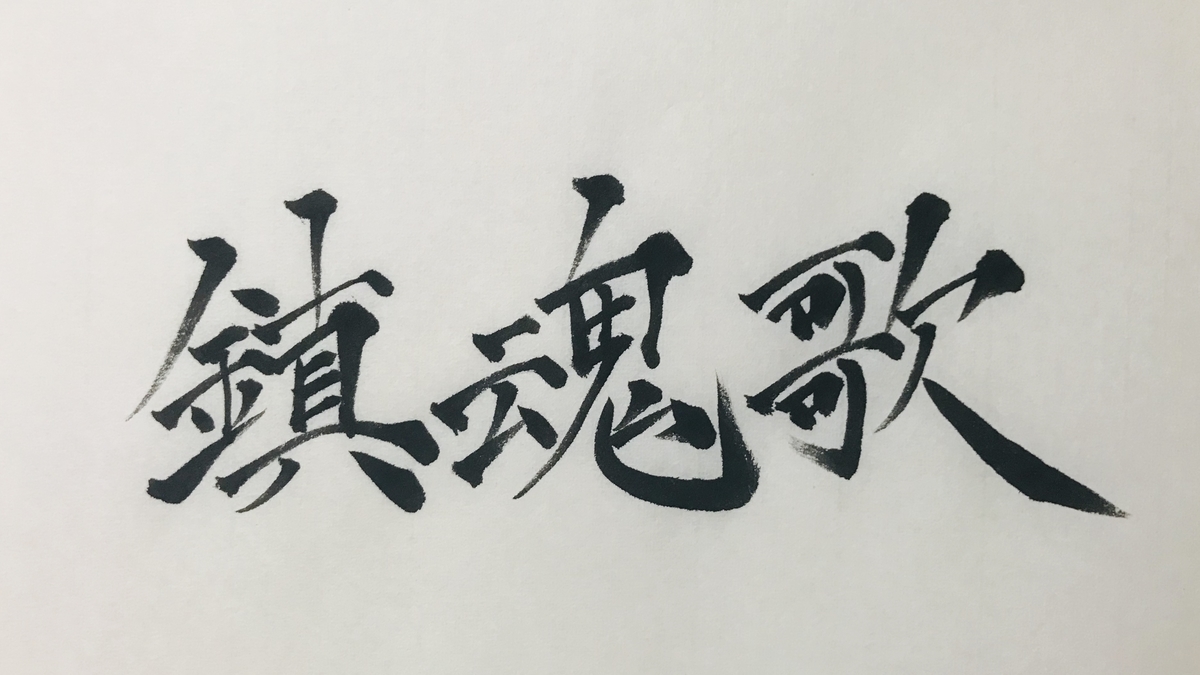 鎮魂歌